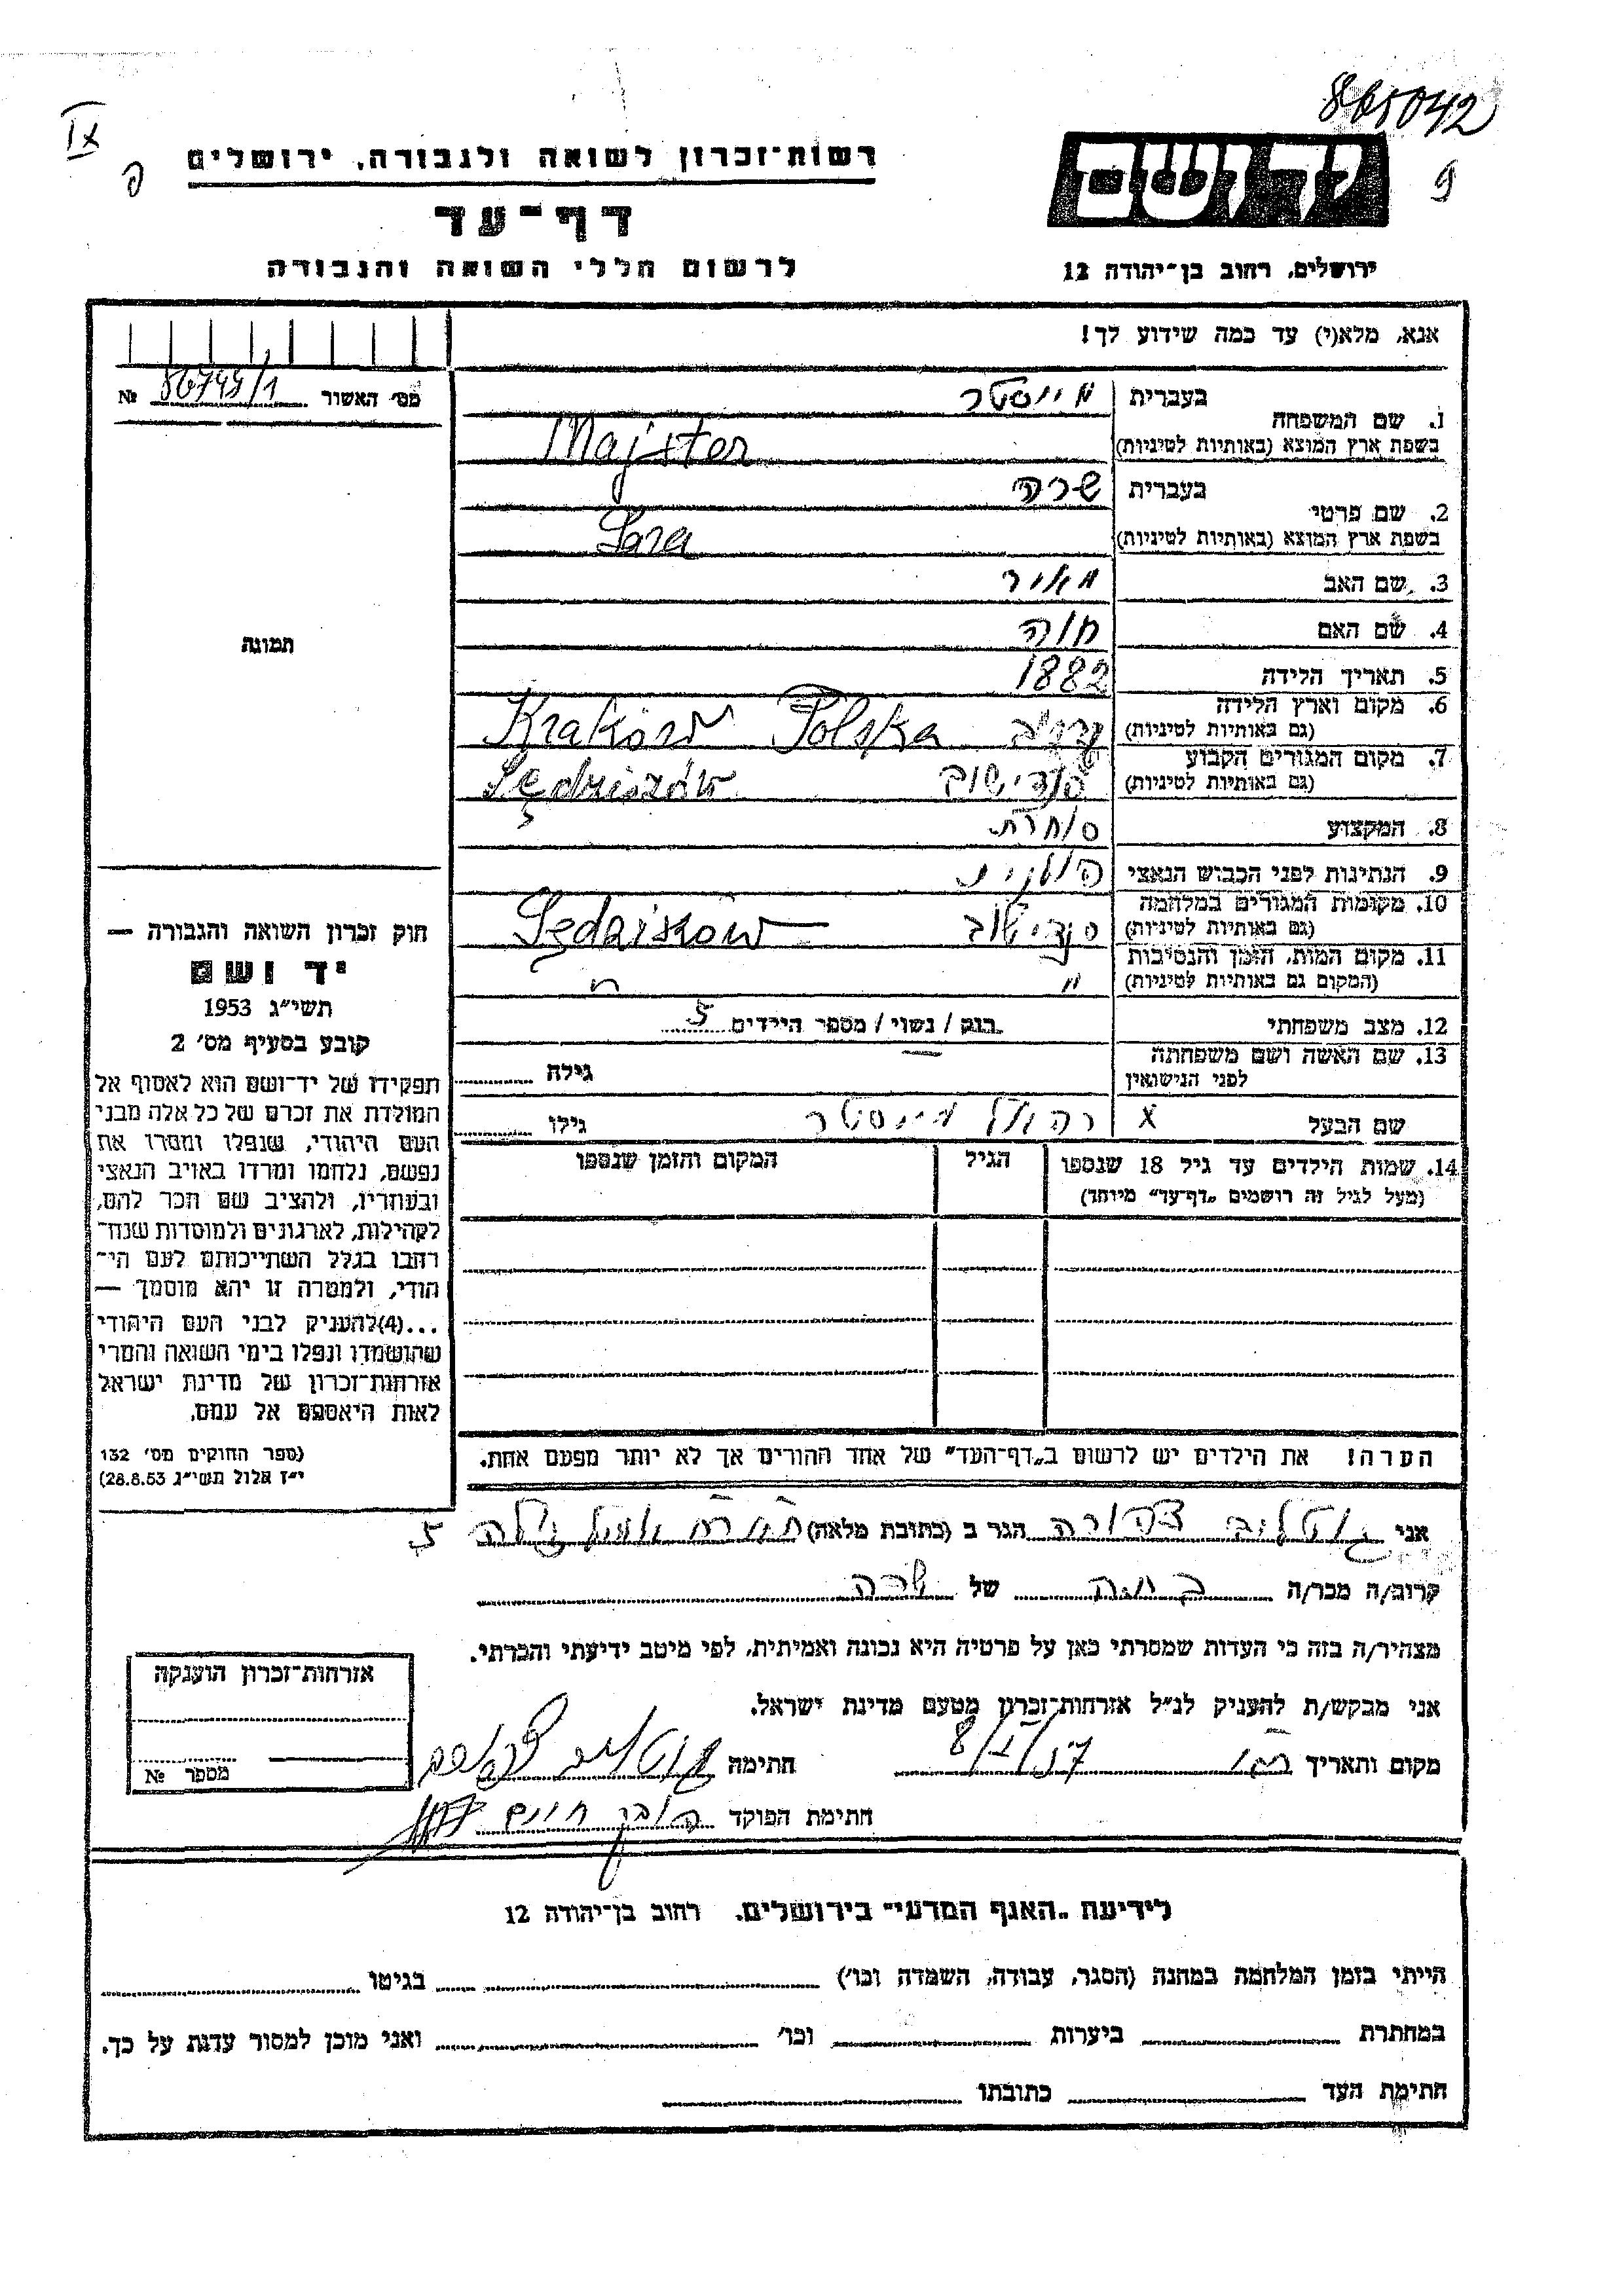 865042
IX
רשות־זכרון לשואה ולגבורה, ירושלים
דף־עד
לרשום חללי השואה והגבורה
יד ושם
ירושלים, רחוב בן־יהודה 12
אנא, מלא(י) עד כמה שידוע לך!
מס׳ האשור 86745/1 №
תמונה
1. שם המשפחה
בעברית מייסטר
בשפת ארץ המוצא (באותיות לטיניות) Majster
2. שם פרטי
בעברית שרה
בשפת ארץ המוצא (באותיות לטיניות) Sara
3. שם האב מאיר
4. שם האם חוה
5. תאריך הלידה 1882
6. מקום וארץ הלידה
(גם באותיות לטיניות) Kraków Polska
7. מקום המגורים הקבוע
(גם באותיות לטיניות) סנדישוב Sędziszów
8. המקצוע סוחרת
9. הנתינות לפני הכבוש הנאצי פולנית
10. מקומות המגורים במלחמה
(גם באותיות לטיניות) סנדישוב Sędziszow
11. מקום המות, הזמן והנסיבות
(המקום גם באותיות לטיניות) " "
12. מצב משפחתי רווק / נשוי / מספר הילדים 5
13. שם האשה ושם משפחתה
לפני הנישואין — גילה
שם הבעל X מייסטר גילו
14. שמות הילדים עד גיל 18 שנספו
(מעל לגיל זה רושמים „דף־עד״ מיוחד)
הגיל
המקום והזמן שנספו
הערה! את הילדים יש לרשום ב„דף־העד״ של אחד ההורים אך לא יותר מפעם אחת.
חוק זכרון השואה והגבורה —
יד ושם
תשי״ג 1953
קובע בסעיף מס׳ 2
תפקידו של יד־ושם הוא לאסוף אל
המולדת את זכרם של כל אלה מבני
העם היהודי, שנפלו ומסרו את
נפשם, נלחמו ומרדו באויב הנאצי
ובעוזריו, ולהציב שם וזכר להם,
לקהילות, לארגונים ולמוסדות שנח־
רבו בגלל השתייכותם לעם הי־
הודי, ולמטרה זו יהא מוסמך —
...(4)להעניק לבני העם היהודי
שהושמדו ונפלו בימי השואה והמרי
אזרחות־זכרון של מדינת ישראל
לאות היאספם אל עמם.
(ספר החוקים מס׳ 132
י״ז אלול תשי״ג 28.8.53)
אני גוטליב צפורה הגר ב (כתובת מלאה) 5
קרוב/ה מכר/ה של שרה
מצהיר/ה בזה כי העדות שמסרתי כאן על פרטיה היא נכונה ואמיתית, לפי מיטב ידיעתי והכרתי.
אני מבקש/ת להעניק לנ״ל אזרחות־זכרון מטעם מדינת ישראל.
מקום ותאריך חתימה גוטליב צפורה
חתימת הפוקד
אזרחות־זכרון הוענקה
מספר №
לידיעת „האגף המדעי״ בירושלים, רחוב בן־יהודה 12
הייתי בזמן המלחמה במחנה (הסגר, עבודה, השמדה וכו׳) בגיטו
במחתרת ביערות וכו׳ ואני מוכן למסור עדות על כך.
חתימת העד כתובתו